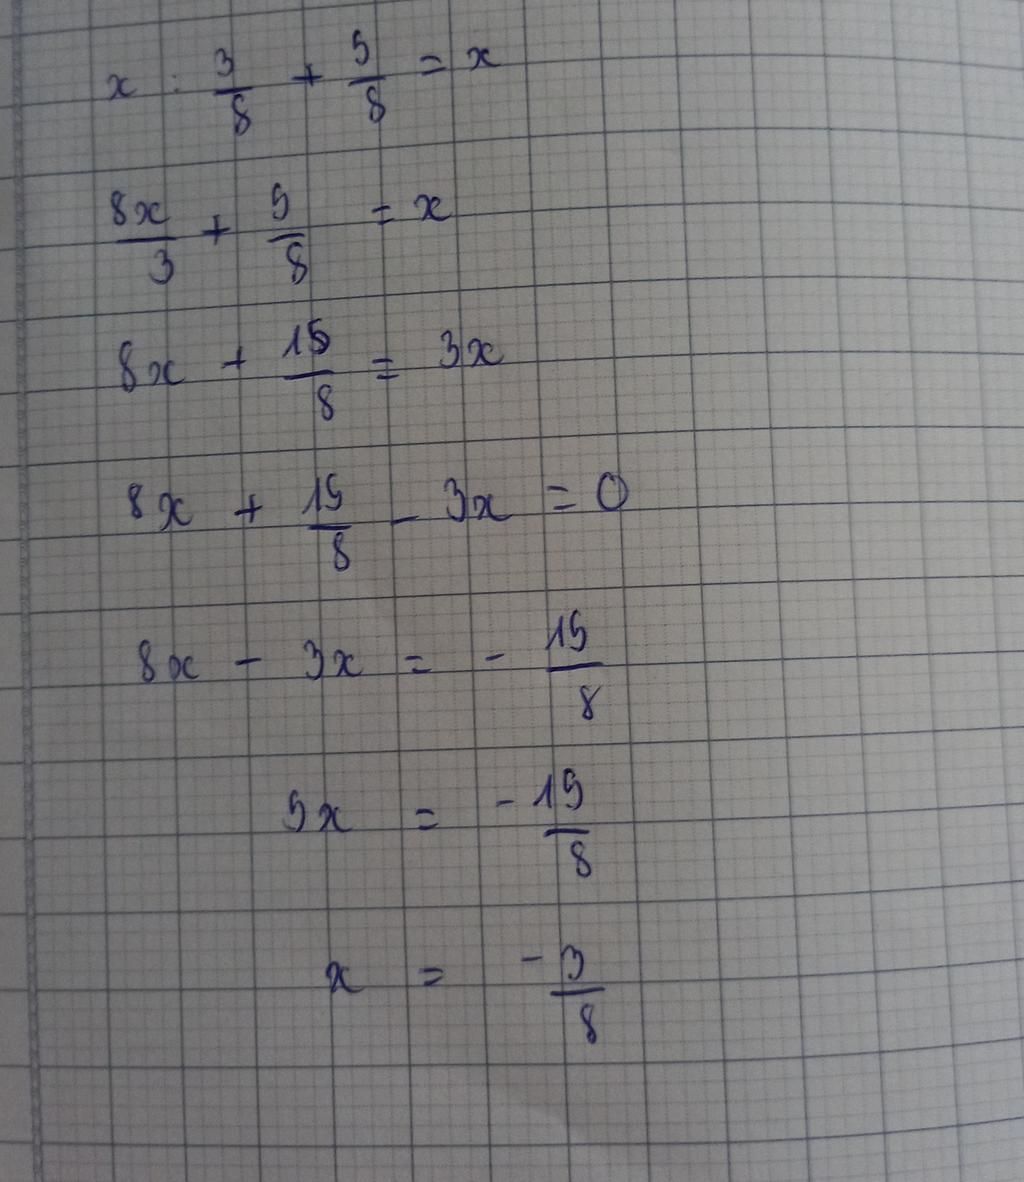 x : 3/8 + 5/8 = x
8x/3 + 5/8 = x
8x + 15/8 = 3x
8x + 15/8 - 3x = 0
8x - 3x = - 15/8
5x = - 15/8
x = - 3/8